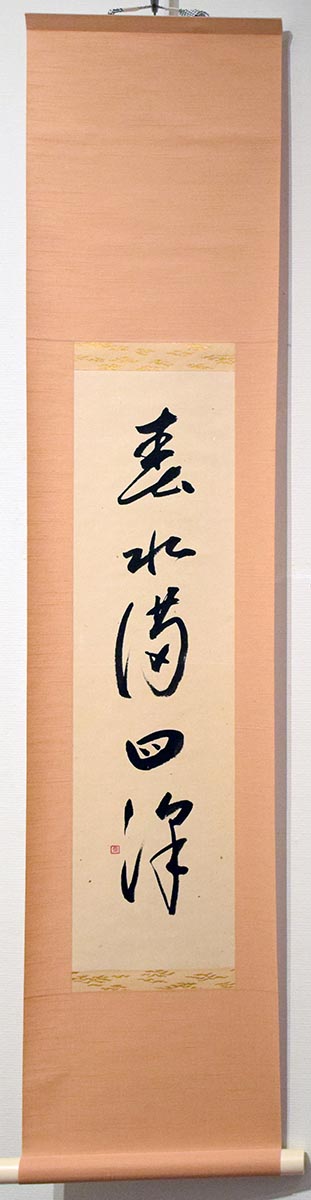 春水満四澤